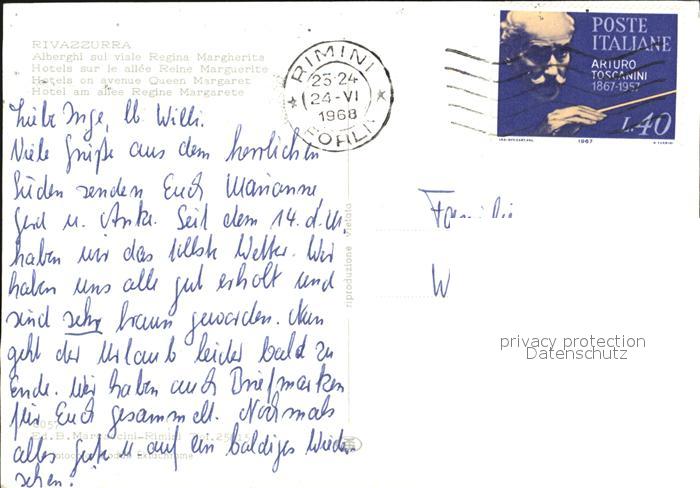 RIVAZZURRA
Alberghi sul viale Regina Margherita
Hotels sur le allée Reine Marguerite
Hotels on avenue Queen Margaret
Hotel am allee Regine Margarete
Liebe Inge, lb Willi.
Viele Grüße aus dem herrlichen
Süden senden Euch Marianne
Gerd u. Anke. Seit dem 14. d. M.
haben wir das tollste Wetter. Wir
haben uns alle gut erholt und
sind sehr braun geworden. Nun
geht der Urlaub leider bald zu
Ende. Wir haben auch Briefmarken
für Euch gesammelt. Nochmals
alles gute u. auf ein baldiges Wieder-
sehen!
Ed. B.
riproduzione vietata
RIMINI
23-24
24-VI
1968
FORLI
POSTE
ITALIANE
ARTURO
TOSCANINI
1867-1957
L.40
1967
Familie
W
privacy protection
Datenschutz